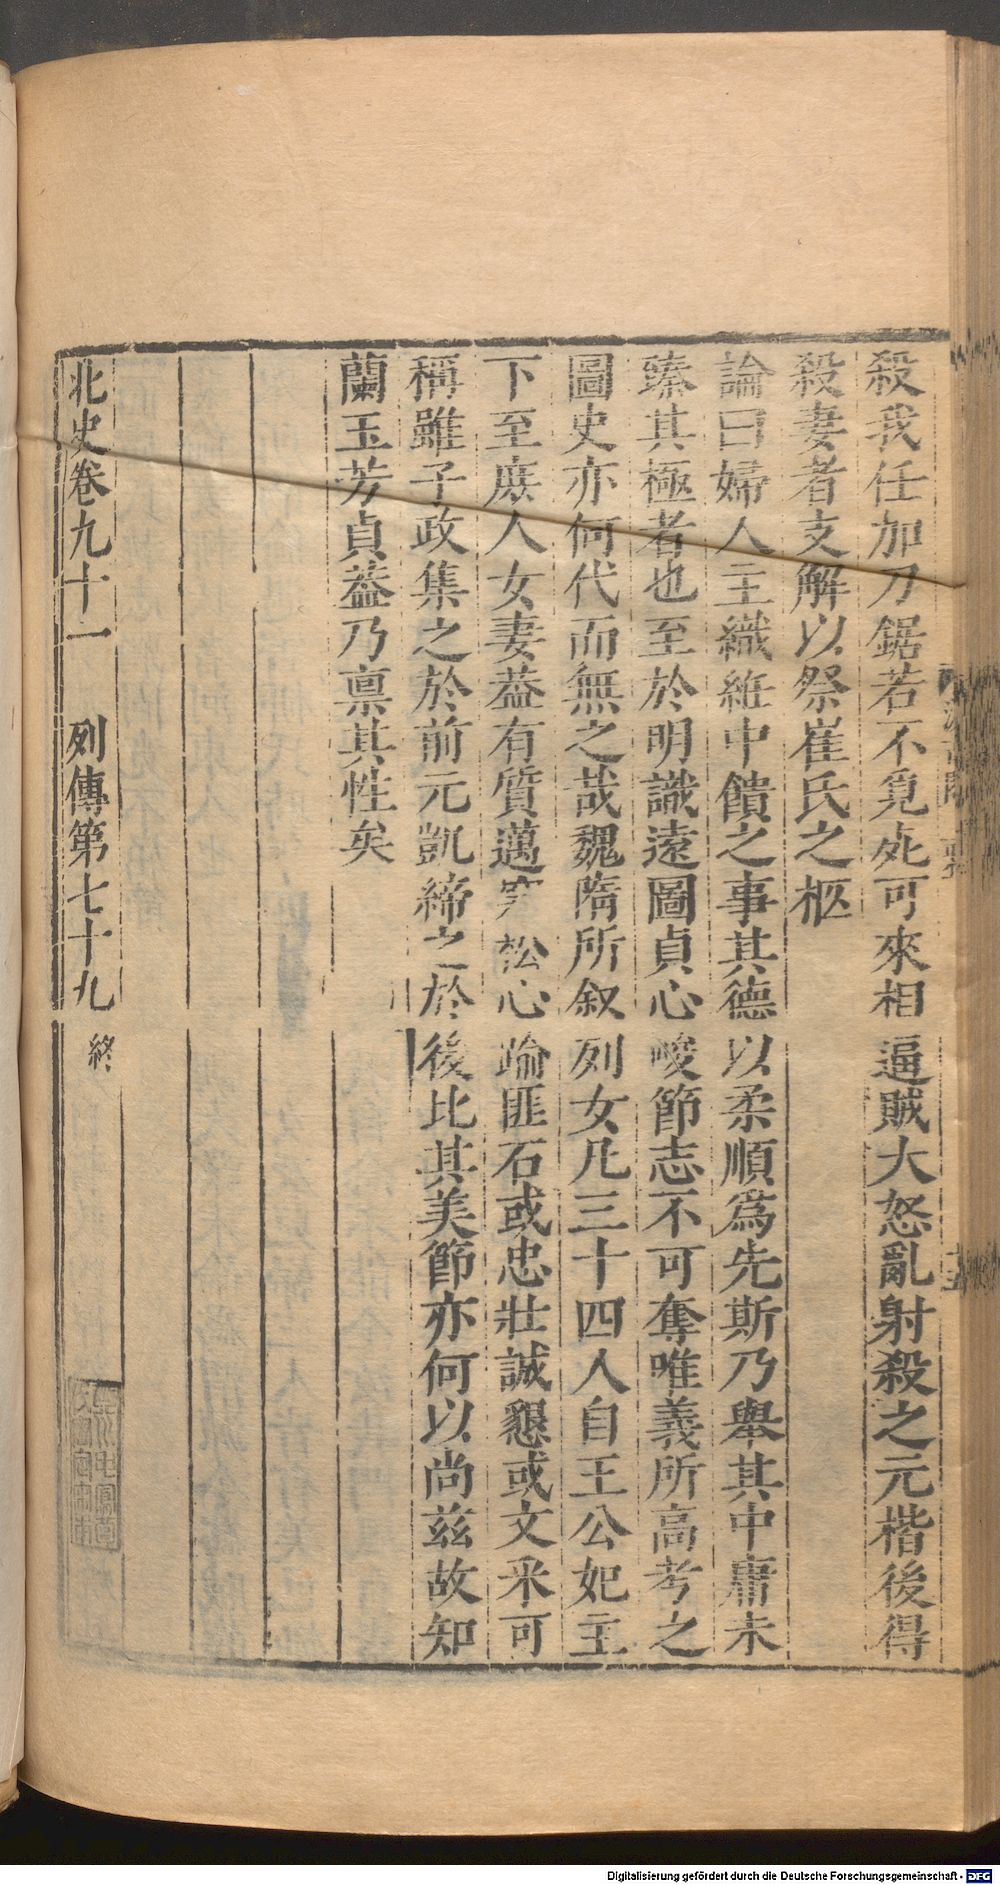 殺我任加刀鋸若不覓死可來相逼賊大怒亂射殺之元楷後得
殺妻者支解以祭崔氏之柩
論曰婦人主織維中饋之事其德以柔順爲先斯乃舉其中庸未
臻其極者也至於明識遠圖貞心峻節志不可奪唯義所高考之
圖史亦何代而無之哉魏隋所叙列女凡三十四人自王公妃主
下至庶人女妻葢有質邁寒松心踰匪石或忠壯誠懇或文采可
稱雖子政集之於前元凱締之於後比其美節亦何以尚兹故知
蘭玉芳貞葢乃禀其性矣
北史卷九十一 列傳第七十九 終
Digitalisierung gefördert durch die Deutsche Forschungsgemeinschaft - DFG